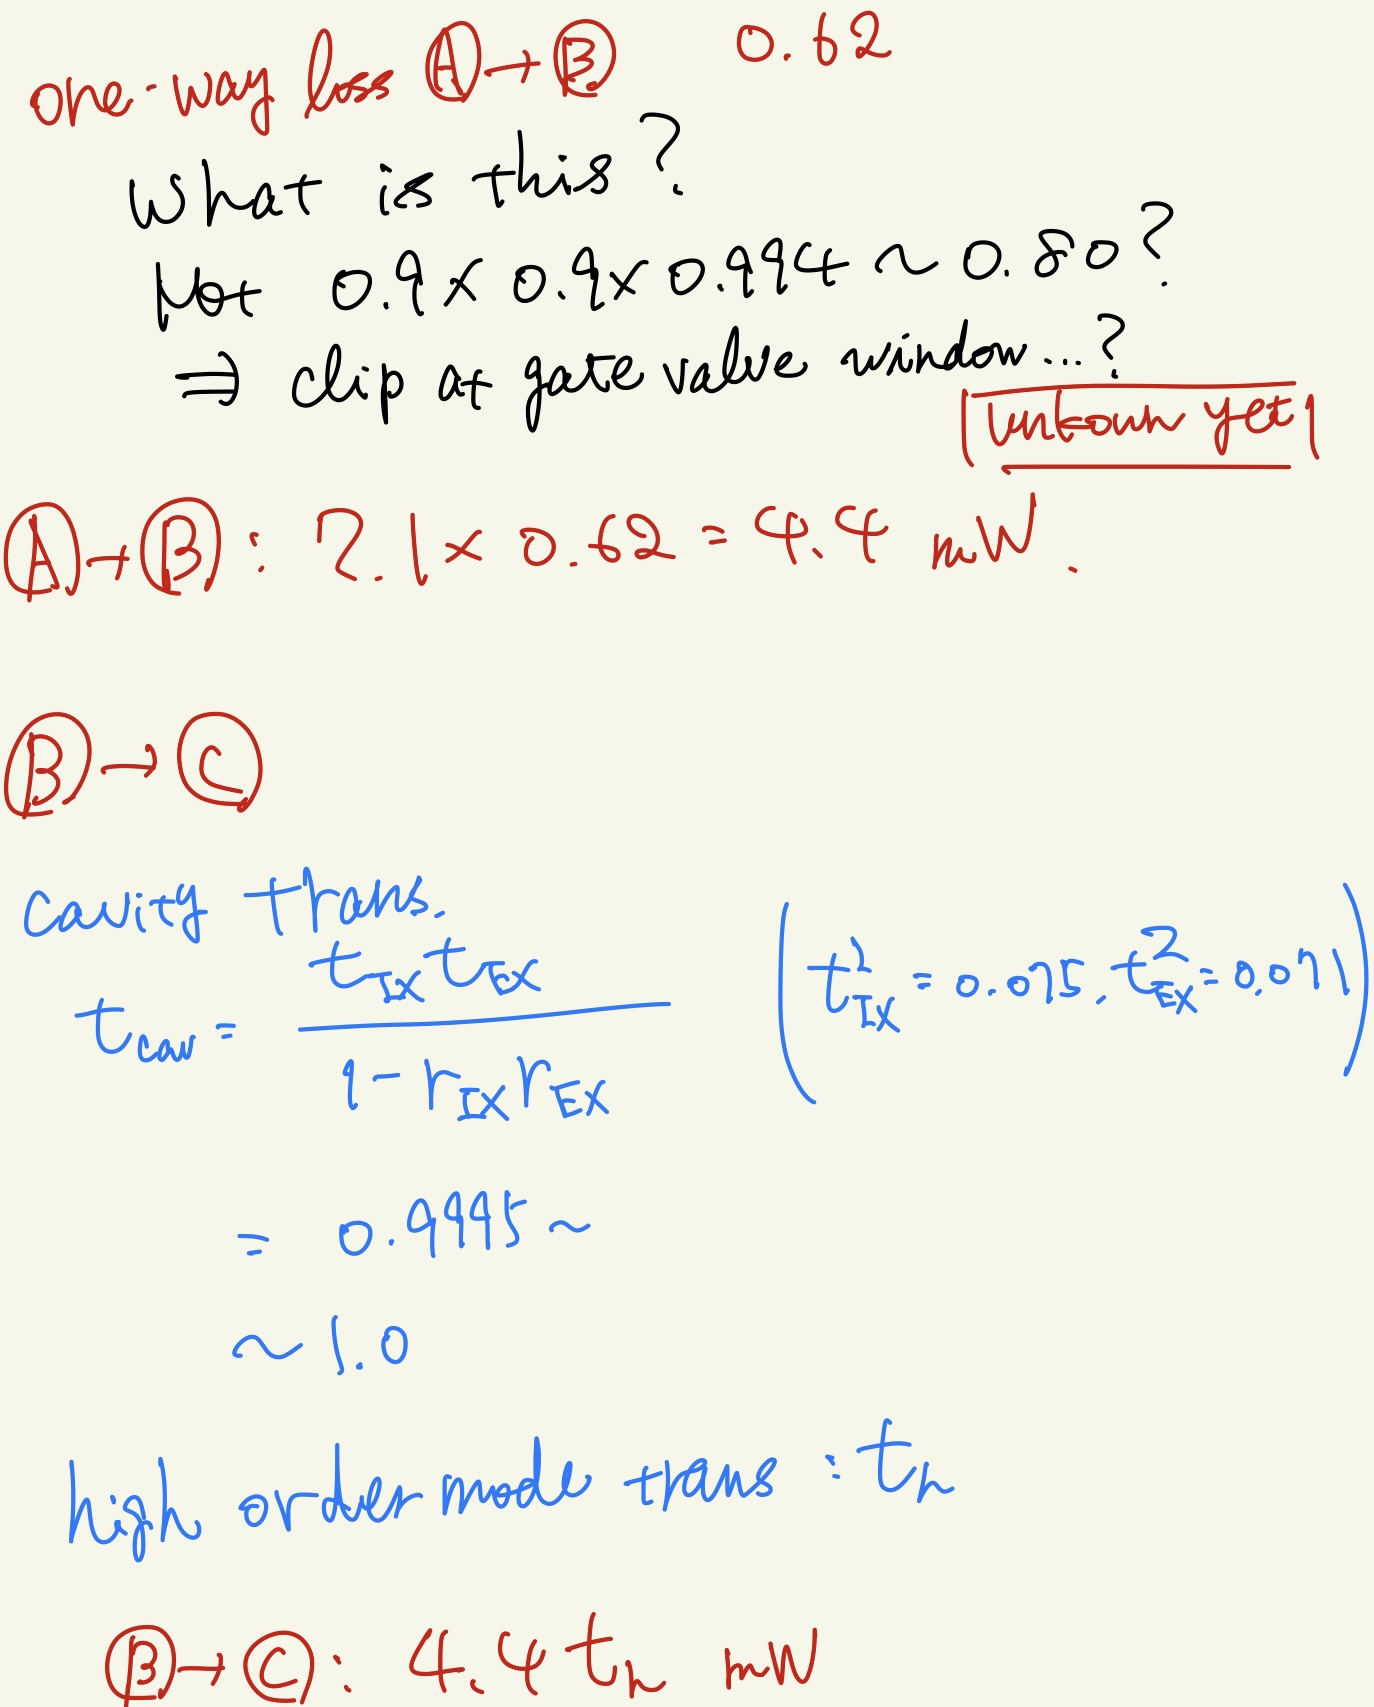 one-way loss Ⓐ→Ⓑ 0.62
What is this?
Not 0.9 × 0.9 × 0.994 ~ 0.80?
⇒ clip at gate valve window...?
unkown yet
Ⓐ→Ⓑ : 7.1 × 0.62 = 4.4 mW.
Ⓑ→Ⓒ
cavity trans.
t_cav = t_IX t_EX / (1 - r_IX r_EX) (t²_IX = 0.075, t²_EX = 0.071)
= 0.9995 ~
~ 1.0
high order mode trans : t_h
Ⓑ→Ⓒ : 4.4 t_h mW